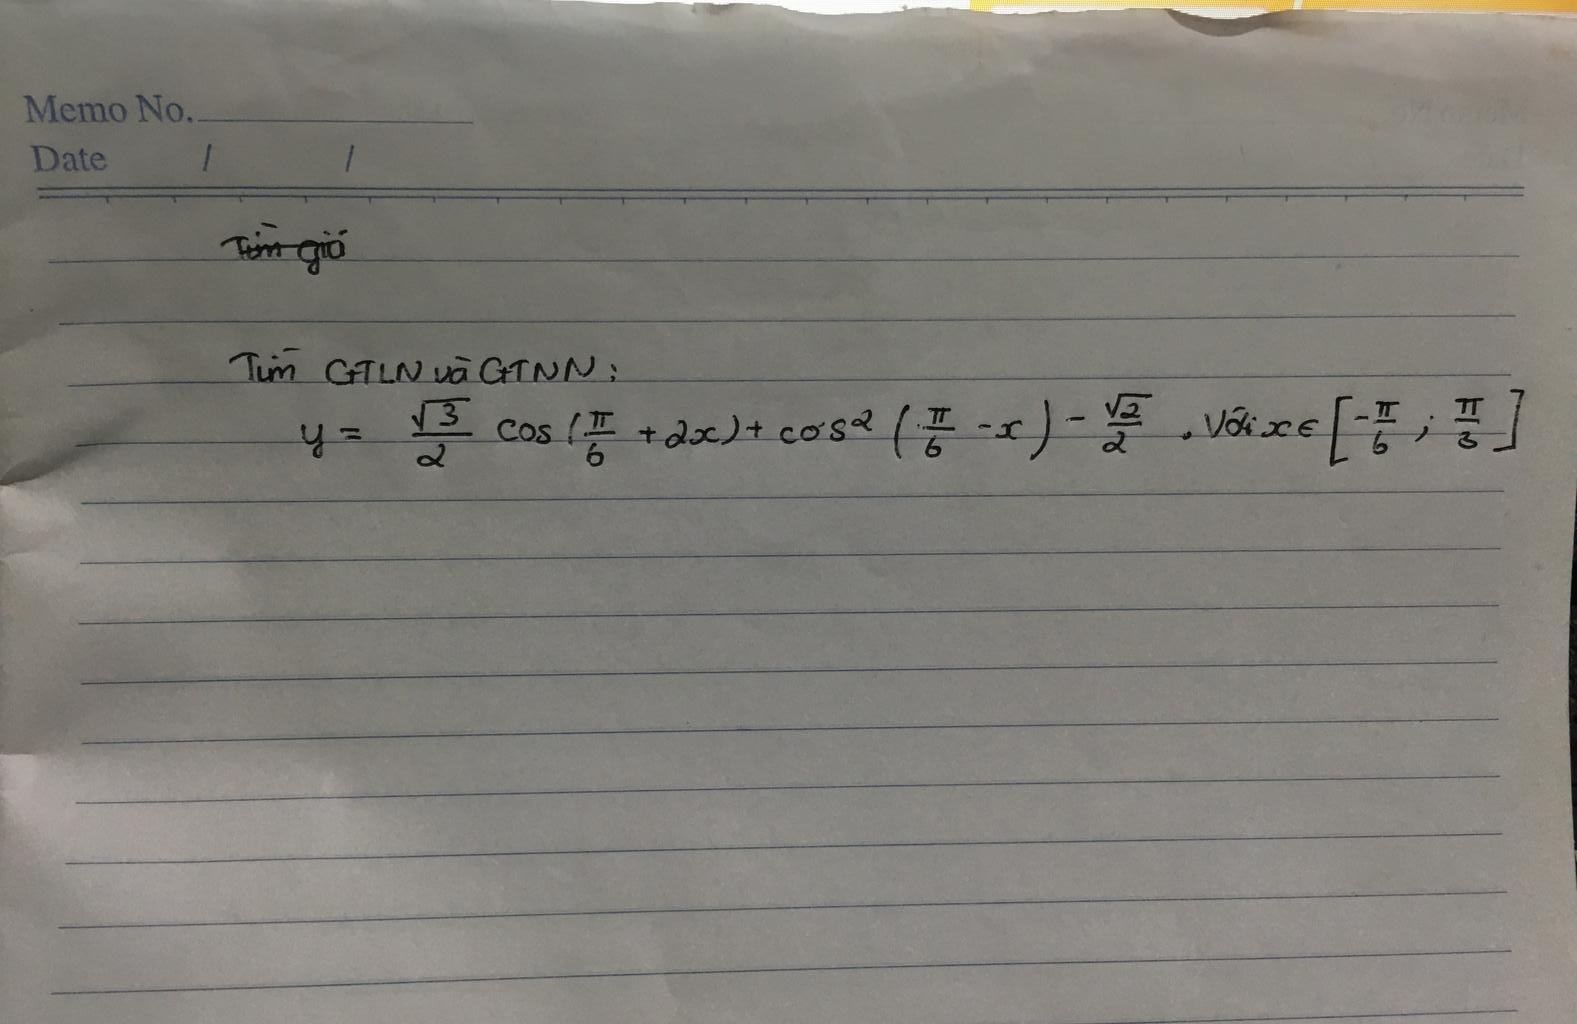 Memo No.
Date / /
Tìm giá
Tìm GTLN và GTNN:
y = √3/2 cos(π/6 + 2x) + cos² (π/6 - x) - √2/2 . Với x ∈ [-π/6 ; π/3]